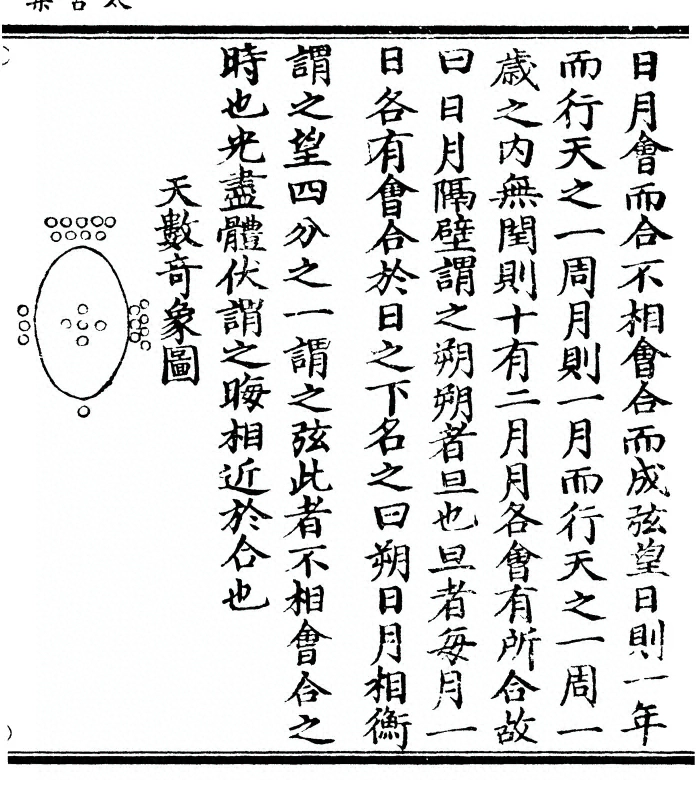 日月會而合不相會合而成弦望日則一年
而行天之一周月則一月而行天之一周一
歲之内無閏則十有二月月各會有所合故
曰日月隔壁謂之朔朔者旦也旦者每月一
日各有會合於日之下名之曰朔日月相衡
謂之望四分之一謂之弦此者不相會合之
時也光盡體伏謂之晦相近於合也
天數奇象圖